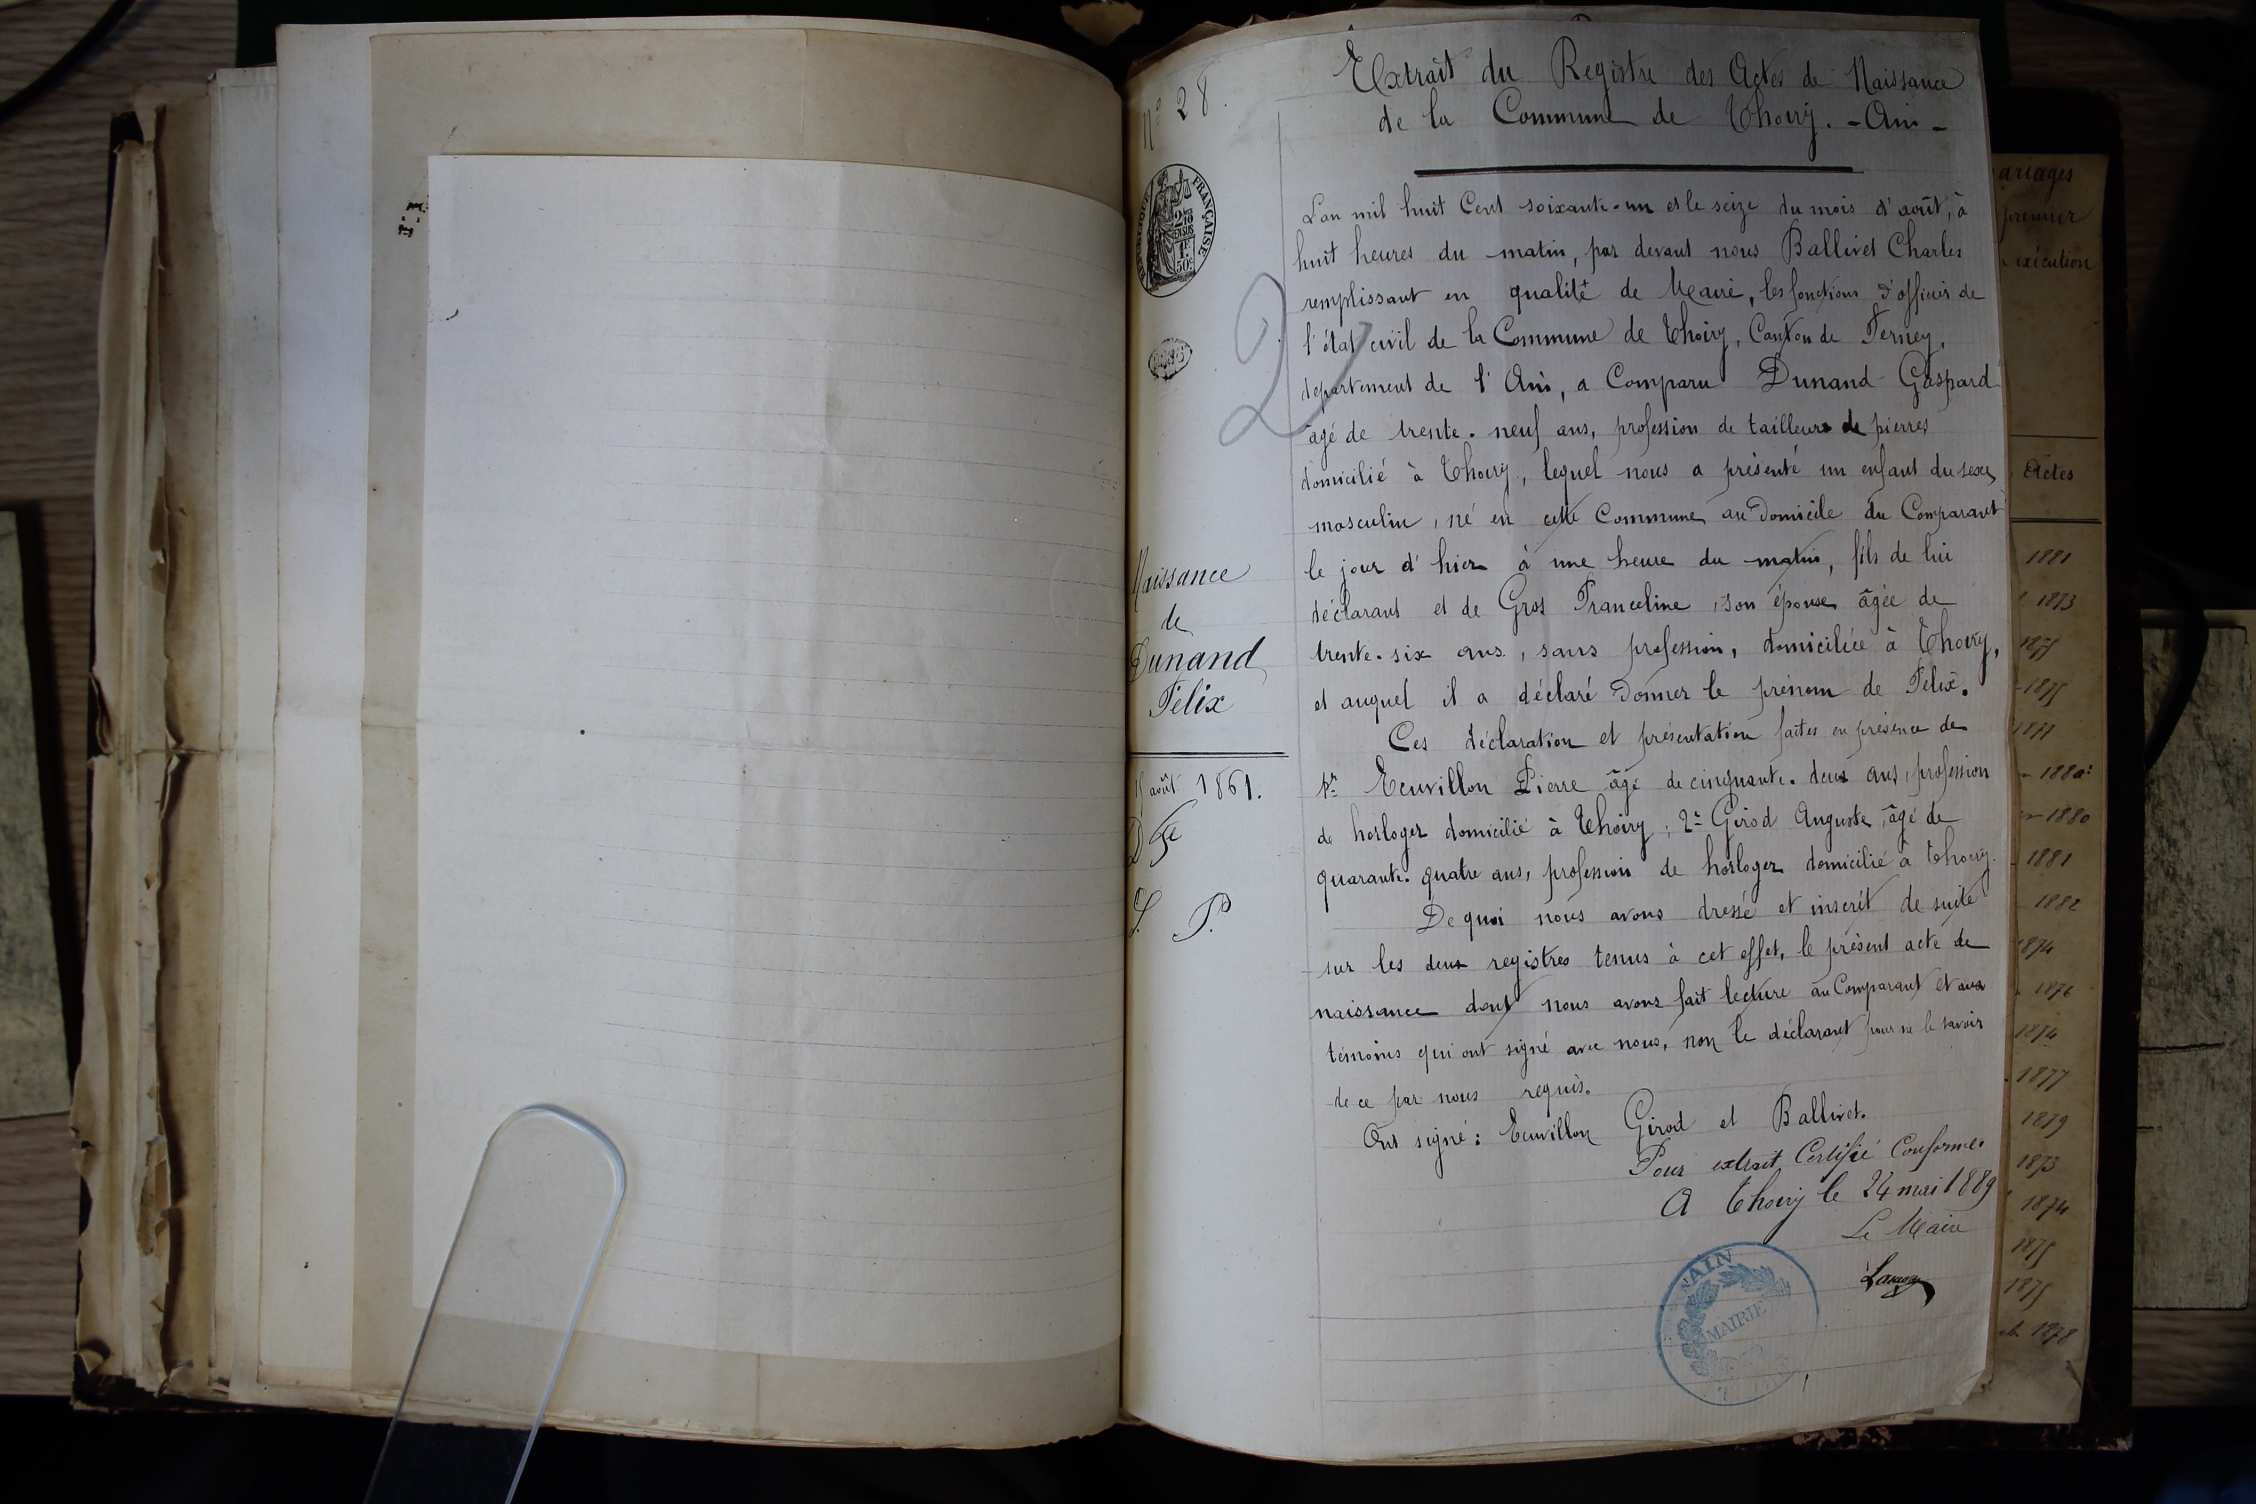 Nº 28.
Extrait du Registre des Actes de Naissance
de la Commune de Thoiry. - Ain -
RÉPUBLIQUE FRANÇAISE
2/10
EN SUS
1F.
50c
L'an mil huit Cent soixante-un et le seize du mois d'août, à
huit heures du matin, par devant nous Ballivet Charles
remplissant en qualité de Maire, les fonctions d'officier de
l'état civil de la Commune de Thoiry, Canton de Ferney,
département de l'Ain, a Comparu Dunand Gaspard
âgé de trente-neuf ans, profession de tailleur de pierres
domicilié à Thoiry, lequel nous a présenté un enfant du sexe
masculin, né en cette Commune au Domicile du Comparant
le jour d'hier à une heure du matin, fils de lui
déclarant et de Gros Franceline, son épouse âgée de
trente-six ans, sans profession, domiciliée à Thoiry,
et auquel il a déclaré Donner le prénom de Félix.
Ces déclaration et présentation faites en présence de
Pr. Ecuvillon Pierre âgé de cinquante-deux ans, profession
de horloger domicilié à Thoiry; 2e Girod Auguste, âgé de
quarante-quatre ans, profession de horloger domicilié à Thoiry.
De quoi nous avons dressé et inscrit de suite
sur les deux registres tenus à cet effet, le présent acte de
naissance dont nous avons fait lecture au Comparant et aux
témoins qui ont signé avec nous, non le déclarant pour ne le savoir
de ce par nous requis.
Ont signé: Ecuvillon Girod et Ballivet.
Pour extrait Certifié Conforme.
A Thoiry le 24 mai 1889
Le Maire
AIN
MAIRIE
Naissance
de
Dunand
Félix
15 août 1861.
ariages
premier
exécution
Actes
1881
1873
1875
1875
1877
1880
1880
1881
1882
1874
1876
1874
1877
1879
1873
1874
1875
1875
1878